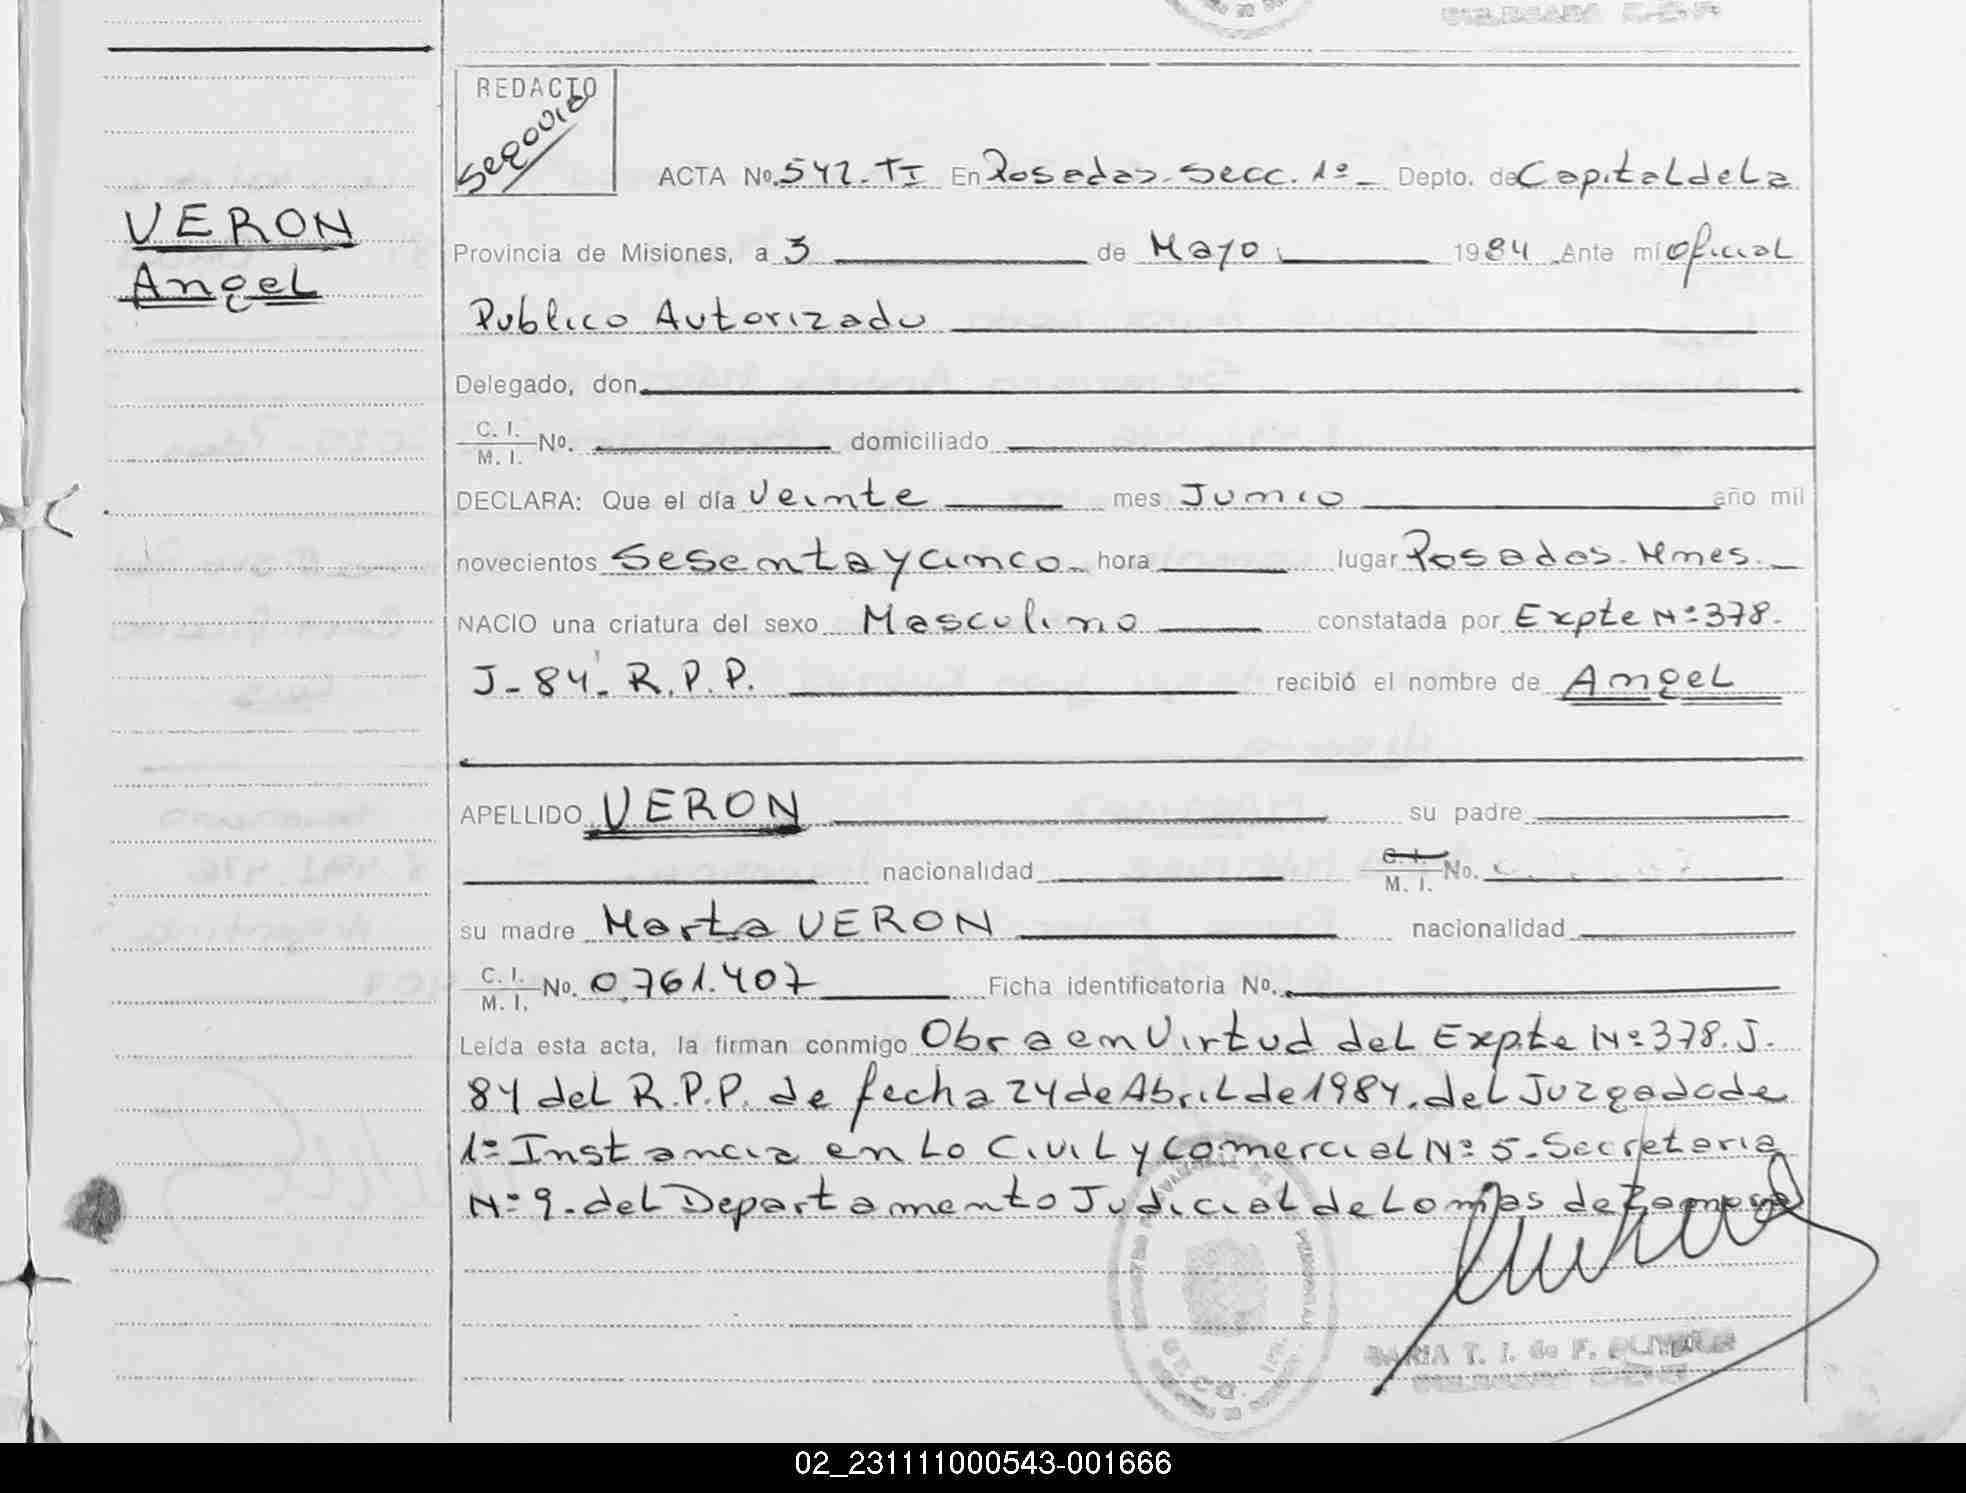 REDACTO
Segovia
ACTA Nº. 542. TI En Posadas. Secc. 1º - Depto. de Capital de La
VERON
Angel
Provincia de Misiones, a 3 de Mayo 1984 Ante mí oficial
Publico Autorizado
Delegado, don
C. I.
M. I. Nº. domiciliado
DECLARA: Que el día Veinte mes Junio año mil
novecientos Sesenta y cinco hora lugar Posadas. Mnes.
NACIO una criatura del sexo Masculino constatada por Expte Nº 378.
J - 84. R. P. P. recibió el nombre de Angel
APELLIDO VERON su padre
nacionalidad C. I.
M. I. No.
su madre Marta VERON nacionalidad
C. I.
M. I. Nº. 0.761.407 Ficha identificatoria Nº.
Leída esta acta, la firman conmigo Obra en Virtud del Expte Nº 378. J.
84 del R. P. P. de fecha 24 de Abril de 1984. del Juzgado de
1º Instancia en Lo Civil y Comercial Nº 5 - Secretaria
Nº 9. del Departamento Judicial de Lomas de Zamora
MARIA T. I. de F. OLIVEIRA
02_231111000543-001666